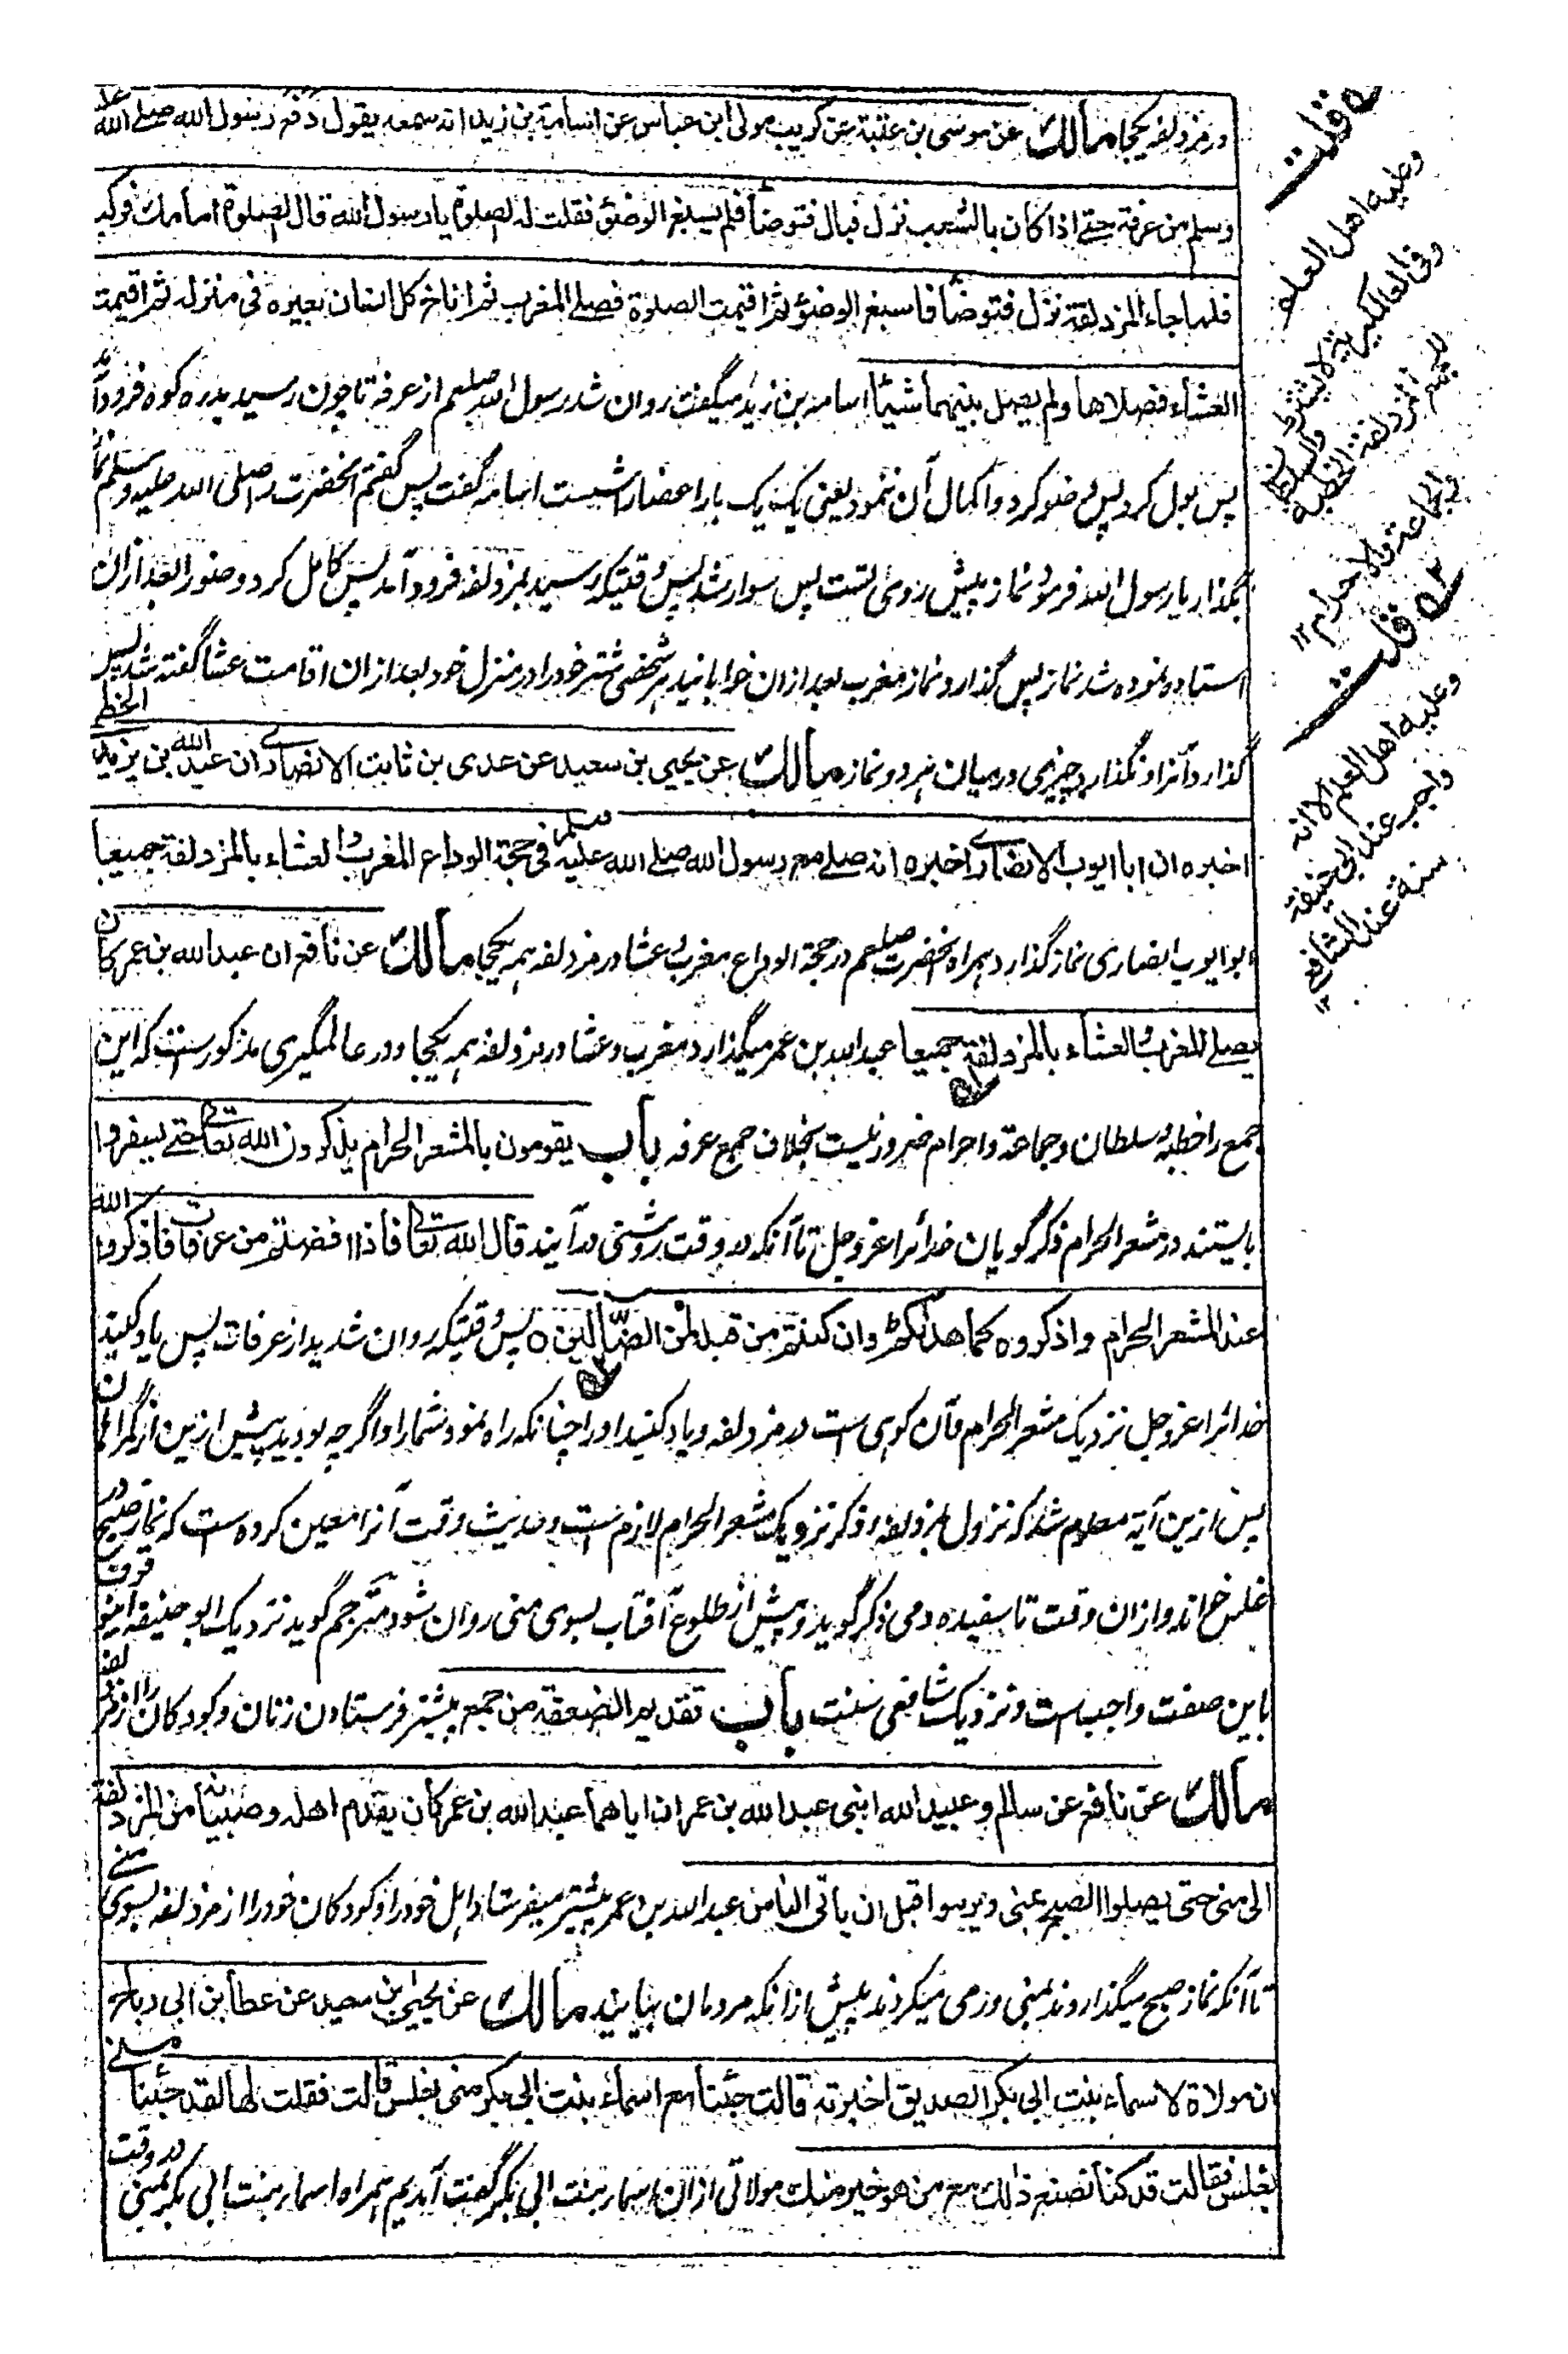 در مزدلفه یکجا مالك عن موسى بن عقبة عن كريب مولى ابن عباس عن اسامة بن زيد انه سمعه يقول دفع رسول الله صلے الله عليه
وسلم من عرفة حتے اذا كان بالشعب نزل فبال فتوضأ فلم يسبغ الوضوء فقلت له الصلوة يا رسول الله قال الصلوة امامك فركب
فلما جاء المزدلفة نزل فتوضأ فاسبغ الوضوء ثم اقيمت الصلوة فصلے المغرب ثم اناخ كل انسان بعيره فى منزله ثم اقيمت
العشاء فصلاها ولم يصل بينهما شيئا اسامه بن زید میگفت روان شد رسول الله صلعم از عرفه تا چون رسید بدره کوه فرود آمد
پس بول کرد پس وضو کرد و اکمال آن ننمود یعنی یک یک بار اعضا را شست اسامه گفت پس گفتم آنحضرت را صلی الله علیه وسلم نماز
بگذار یا رسول الله فرمود نماز پیش روی تست پس سوار شد پس وقتیکه رسید بمزدلفه فرود آمد پس کامل کرد وضو را بعد ازان
استاده نموده شد نماز پس گذارد نماز مغرب بعد ازان خوابانید هر شخصی شتر خود را در منزل خود بعد ازان اقامت عشا گفته شد پس
گذارد آنرا و نگذارد چیزی درمیان هر دو نماز مالك عن يحيى بن سعيد عن عدى بن ثابت الانصارى ان عبد الله بن يزيد الخطمى
اخبره ان ابا ايوب الانصارى اخبره انه صلے مع رسول الله صلے الله عليه وسلم فى حجة الوداع المغرب والعشاء بالمزدلفة جميعا
ابو ایوب انصاری نماز گذارد همراه آنحضرت صلعم در حجة الوداع مغرب و عشا در مزدلفه همه یکجا مالك عن نافع ان عبد الله بن عمر كان
يصلے المغرب والعشاء بالمزدلفة جميعا عبد الله بن عمر میگذارد مغرب و عشا در مزدلفه همه یکجا و در عالمگیری مذکور ست که این
جمع را خطبه و سلطان و جماعة و احرام ضرور نیست بخلاف جمع عرفه باب يقومون بالمشعر الحرام يذكرون الله تعالى حتے يسفروا
بایستند در مشعر الحرام ذکر گویان خدائرا عز و جل تا آنکه در وقت روشنی در آیند قال الله تعالى فاذا افضتم من عرفات فاذكروا الله
عند المشعر الحرام واذكروه كما هدىكم وان كنتم من قبله لمن الضالين ٥ پس وقتیکه روان شدید از عرفات پس یاد کنید
خدائرا عز و جل نزدیک مشعر الحرام و آن کوهی ست در مزدلفه و یاد کنید او را چنانکه راه نمود شمارا و اگر چه بودید پیش ازین از گمراهان
پس ازین آیة معلوم شد که نزول بمزدلفه و ذکر نزدیک مشعر الحرام لازم ست و حدیث وقت آنرا معین کرده ست که نماز صبح در
غلس خواند و ازان وقت تا سفیده دمی ذکر گوید و پیش از طلوع آفتاب بسوی منی روان شود مترجم گوید نزدیک ابو حنیفه این وقوف
باین صفت واجب ست و نزدیک شافعی سنت باب تقديم الضعفة من جمع پیشتر فرستادن زنان و کودکان را از مزدلفه
مالك عن نافع عن سالم وعبيد الله ابنى عبد الله بن عمر ان اباهما عبد الله بن عمر كان يقدم اهله وصبيانه من المزدلفة
الى منى حتى يصلوا الصبح بمنى ويرموا قبل ان ياتى الناس عبد الله بن عمر پیشتر میفرستاد اهل خود را و کودکان خود را از مزدلفه بسوی منے
تا آنکه نماز صبح میگذاروند بمنی و رمی میکردند پیش از آنکه مردمان بیایند مالك عن يحيى بن سعيد عن عطاء بن ابى رباح
ان مولاة لاسماء بنت ابى بكر الصديق اخبرته قالت جئنا مع اسماء بنت ابى بكر منى بغلس قالت فقلت لها لقد جئنا منے
بغلس فقالت قد كنا نصنع ذلك مع من هو خير منك مولاتی ازان اسمار بنت ابی بکر گفت آمدیم همراه اسمار بنت ابی بکر بمنی در وقت
قلت
وعليه اهل العلم
وفى العالمگيرية لا يشترط
للجمع المزدلفة الخطبة والسلطان
والجماعة والاحرام ١٢
قلت
وعليه اهل العلم الا انه
واجب عند ابى حنيفة
سنة عند الشافعى ١٢